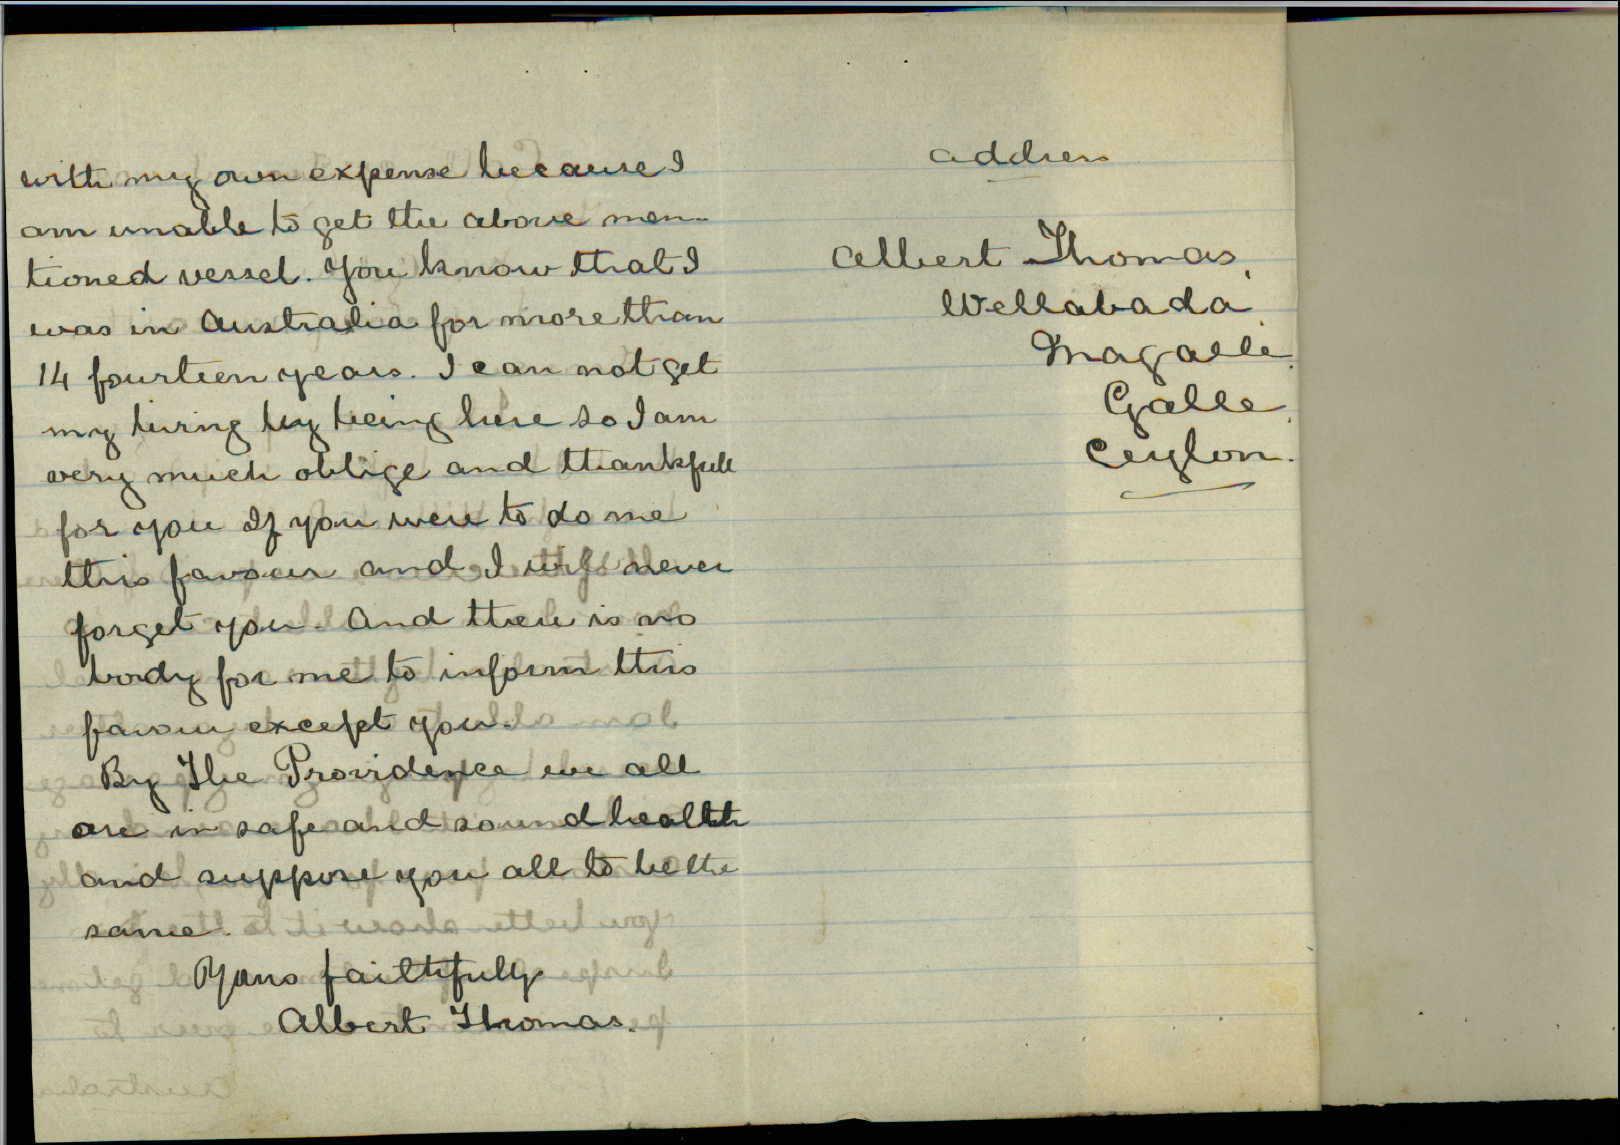 with my own expense because I
am unable to get the above men-
tioned vessel. You know that I
was in Australia for more than
14 fourteen years. I can not get
my living by being here so I am
very much oblige and thankfull
for you If you were to do me
this favour and I will never
forget you. And there is no
body for me to inform this
favour except you.
By The Providence we all
are in safe and sound health
and suppose you all to be the
same.
Yours faithfully
Albert Thomas.
address
Albert Thomas,
Wellabada,
Magalle,
Galle,
Ceylon.